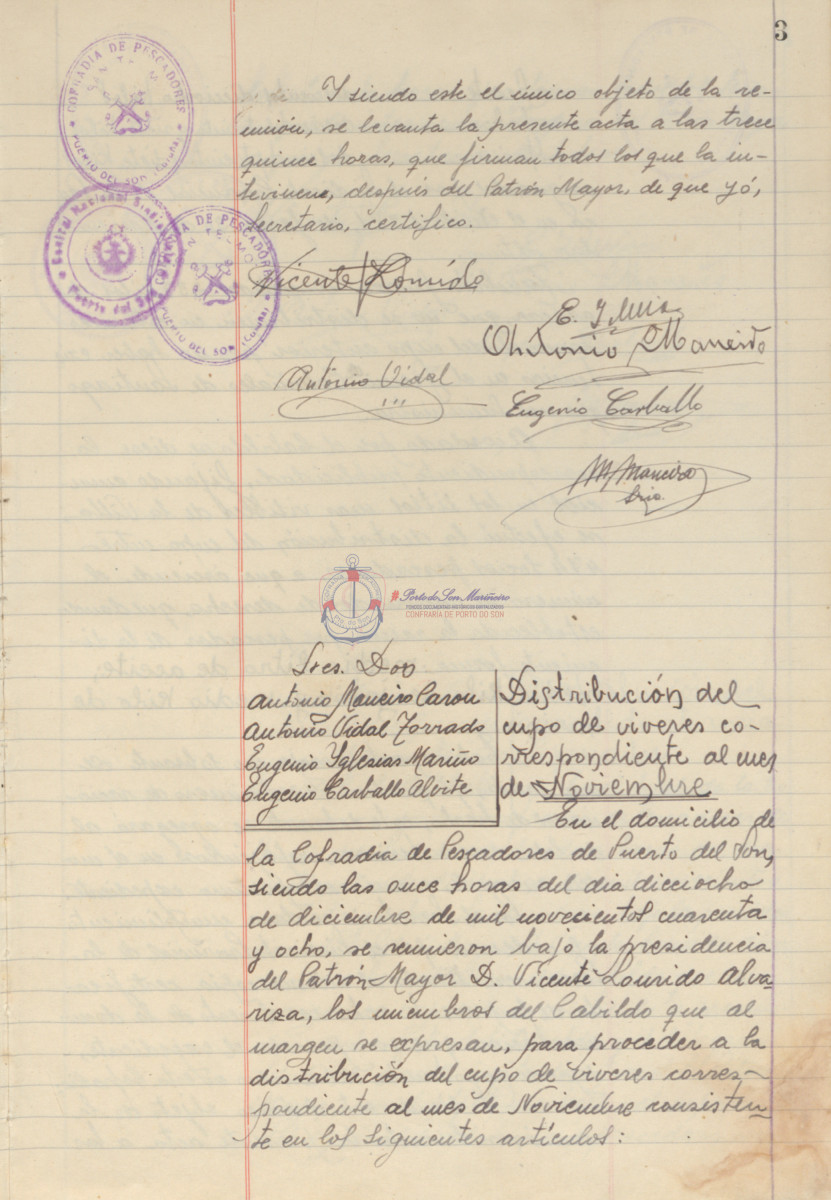 3
COFRADIA DE PESCADORES
SAN TELMO
PUERTO DEL SON (Coruña)
Central Nacional Sindicalista
Puerto del Son
COFRADIA DE PESCADORES
SAN TELMO
PUERTO DEL SON (Coruña)
Y siendo este el único objeto de la re-
unión, se levanta la presente acta a las trece
quince horas, que firman todos los que la in-
tevinene, después del Patrón Mayor, de que yó,
Secretario, certifico.
Vicente Lourido
Antonio Maneiro
Antonio Vidal
Eugenio Carballo
M. Maneiro
Srio.
COFRADIA
Pto. do Son
#Porto do Son Mariñeiro
FONDOS DOCUMENTAIS HISTÓRICOS DIXITALIZADOS
CONFRARIA DE PORTO DO SON
Sres. Don
Antonio Maneiro Carou
Antonio Vidal Torrado
Eugenio Yglesias Mariño
Eugenio Carballo Alvite
Distribución del
cupo de viveres co-
rrespondiente al mes
de Noviembre
En el domicilio de
la Cofradia de Pescadores de Puerto del Son,
siendo las once horas del dia dieciocho
de diciembre de mil novecientos cuarenta
y ocho, se reunieron bajo la presidencia
del Patrón Mayor D. Vicente Lourido Alva-
riza, los miembros del Cabildo que al
margen se expresan, para proceder a la
distribución del cupo de viveres corres-
pondiente al mes de Noviembre consisten-
te en los siguientes artículos: